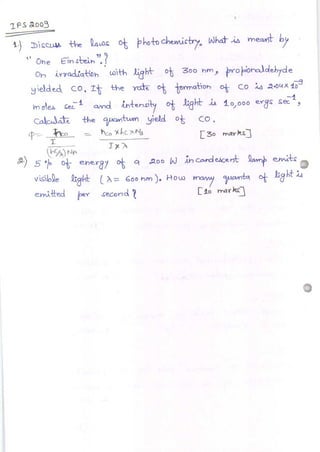 IPS 2009
1) Discuss the laws of photochemistry. What is meant by
"One Einstein".?
On irradiation with light of 300 nm, propionaldehyde
yielded CO. If the rate of formation of CO is 2.04 x 10⁻⁹
moles sec⁻¹ and intensity of light is 10,000 ergs sec⁻¹,
Calculate the quantum yield of CO.
φ = nco / I/(hc/λ)NA = nco x hc x NA / I x λ [30 marks]
2) 5% of energy of a 200 W incandescent lamp emits
visible light (λ = 600 nm). How many quanta of light is
emitted per second? [10 marks]